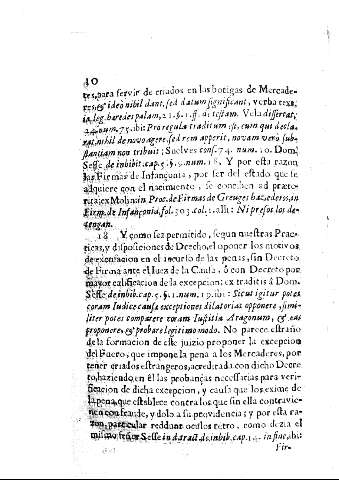 10
tes, para servir de criados en las botigas de Mercade-
res, & ideò nihil dant, sed datum significant, verba text.
in leg. haredes palam, 21. §. 1. ff. de testam. Vela dissertat.
34. num. 75. ibi: Pro regula traditum est, cum qui decla-
rat, nihil de novo agere, sed rem aperit, novam verò sub-
stantiam non tribuit; Suelves cons. 74. num. 10. Dom.
Sesse de inhibit. cap. 5. §. 9. num. 18. Y por esta razon
las Firmas de Infançonia, por ser del estado que se
adquiere con el nacimiento, se conciben ad præte-
rita, ex Molin. in Proc. de Firmas de Greuges hazederos, an
Firm. de Infançonia, fol. 303. col. 1. alli: Ni presos los de-
tengan.
18 Y como sea permitido, segun nuestras Prac-
ticas, y disposiciones de Derecho, el oponer los motivos
de exonsacion en el incurso de las penas, sin Decreto
de Firma ante el Juez de la Causa, ò con Decreto por
mayor calificacion de la excepcion; ex traditis à Dom.
Sesse de inhib. cap. 5. §. 1. num. 19. ibi: Sicut igitur potes
coram Iudice causa exceptiones dilatorias opponere, simi-
liter potes comparere coram Iustitia Aragonum, & eas
proponere, & probare legitimo modo. No parece estraño
de la formacion de este juizio proponer la excepcion
del Fuero, que impone la pena a los Mercaderes, por
tener criados estrangeros, acreditada con dicho Decre
to, haziendo en èl las probanças necessarias para veri-
ficacion de dicha excepcion, y causa que los exime de
la pena, que establece contra los que sin ella contravie-
nen con fraude, y dolo a su providencia; y por esta ra-
zon, particular reddunt ocules retro, como dezia el
mismo señor Sesse in dara ct. de inhib. cap. 14. in fine, ibi:
Fir-